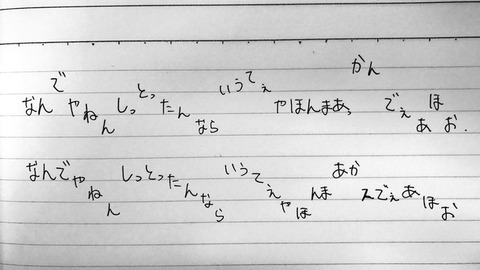 なんでやねんしっとったんならいうてぇやほんまあ、かんでぇあほお.
なんでやねんしっとったんならいうてぇやほんまあかんでぇあほお